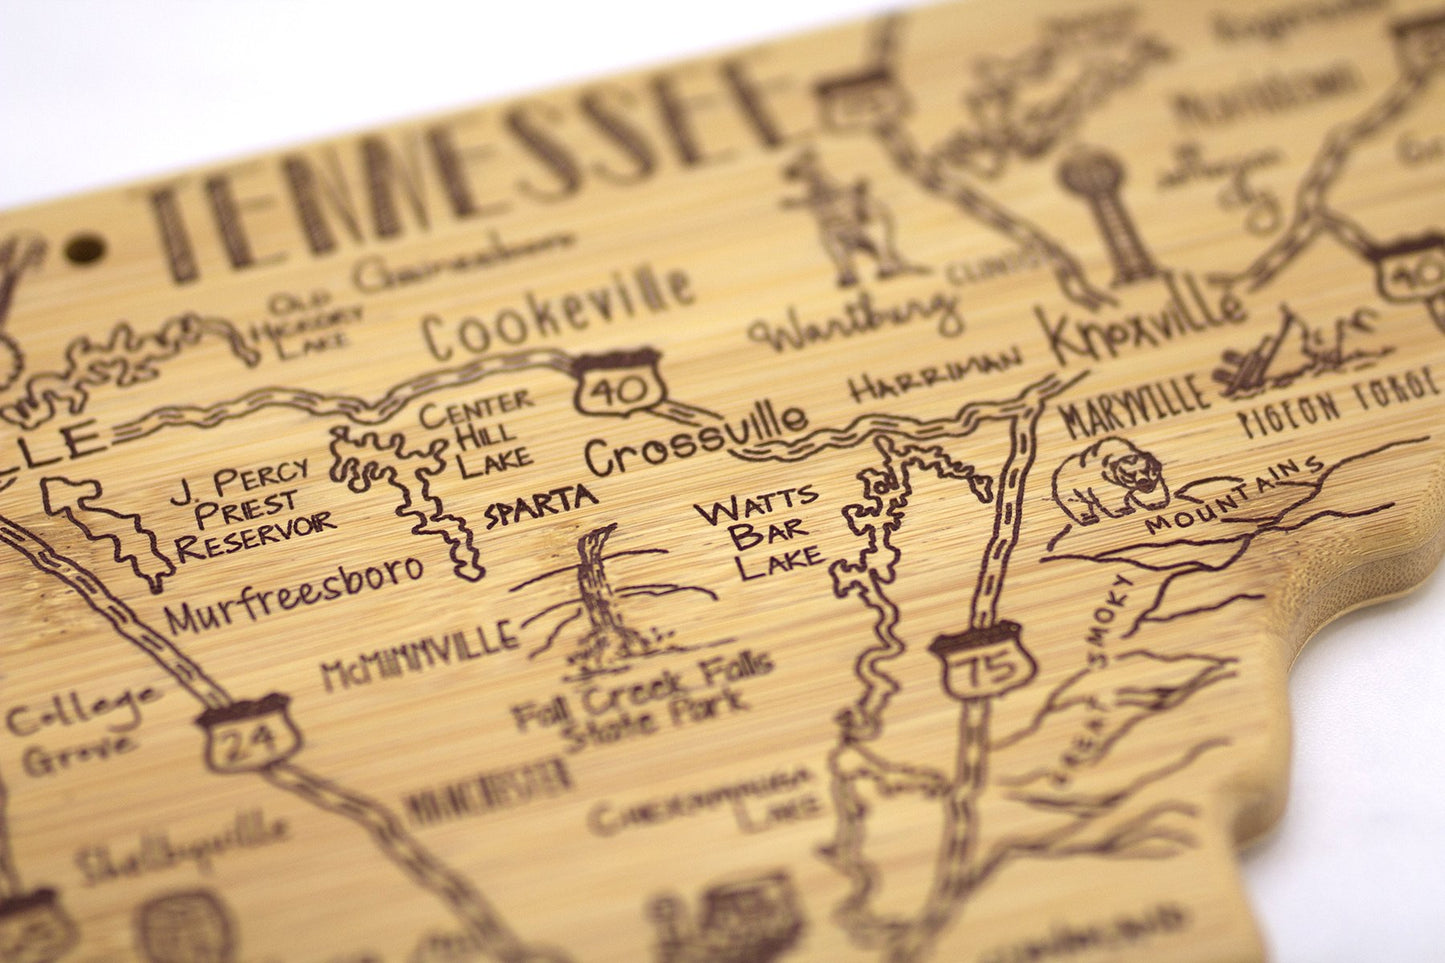 TENNESSEE
Gainesboro
OLD
HICKORY
LAKE
Cookeville
40
CENTER
HILL
LAKE
Crossville
SPARTA
LLE
J. PERCY
PRIEST
RESERVOIR
Murfreesboro
McMINNVILLE
Fall Creek Falls
State Park
College
Grove
24
MANCHESTER
Shelbyville
Wartburg
CLINTON
HARRIMAN
Knoxville
Morristown
40
MARYVILLE
PIGEON FORGE
WATTS
BAR
LAKE
75
GREAT SMOKY MOUNTAINS
LAKE